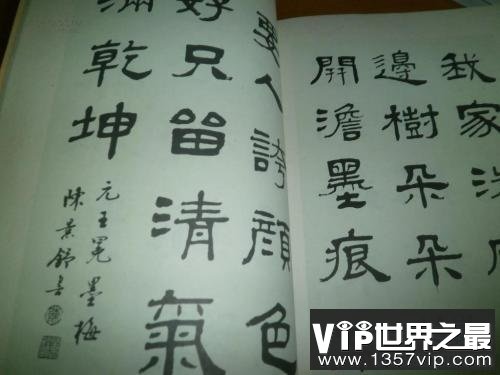 我家洗
邊樹朵朵
開澹墨痕
要人誇顏色
好只留清氣
滿乾坤
元王冕墨梅
陳景舒書
VIP世界之最
www.1357vip.com